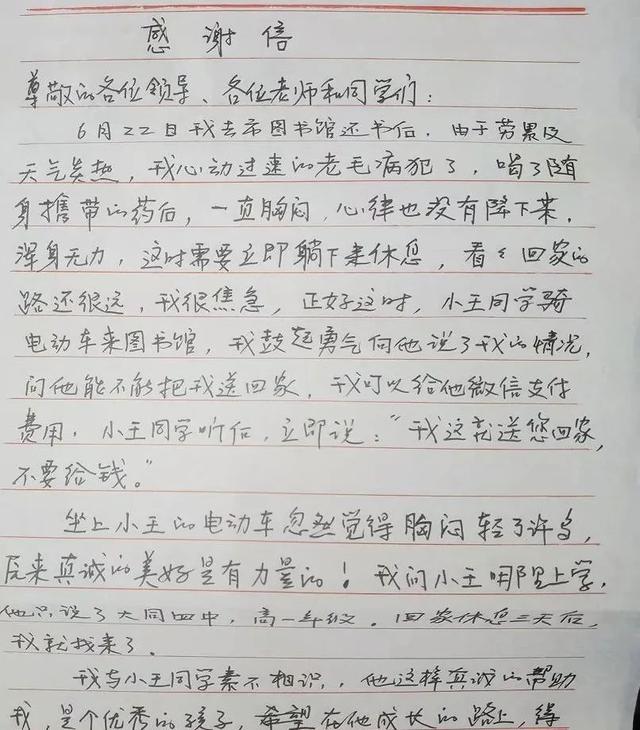 感谢信
尊敬的各位领导、各位老师和同学们：
6月22日我去市图书馆还书后，由于劳累及
天气炎热，我心动过速的老毛病犯了，喝了随
身携带的药后，一直胸闷，心律也没有降下来，
浑身无力，这时需要立即躺下来休息，看看回家的
路还很远，我很焦急，正好这时，小王同学骑
电动车来图书馆，我鼓起勇气向他说了我的情况，
问他能不能把我送回家，我可以给他微信支付
费用。小王同学听后，立即说：“我这就送您回家，
不要给钱。”
坐上小王的电动车忽然觉得胸闷轻了许多，
原来真诚的美好是有力量的！我问小王哪里上学，
他只说了大同四中，高一年级。回家休息三天后，
我就找来了。
我与小王同学素不相识，他这样真诚的帮助
我，是个优秀的孩子，希望在他成长的路上，得